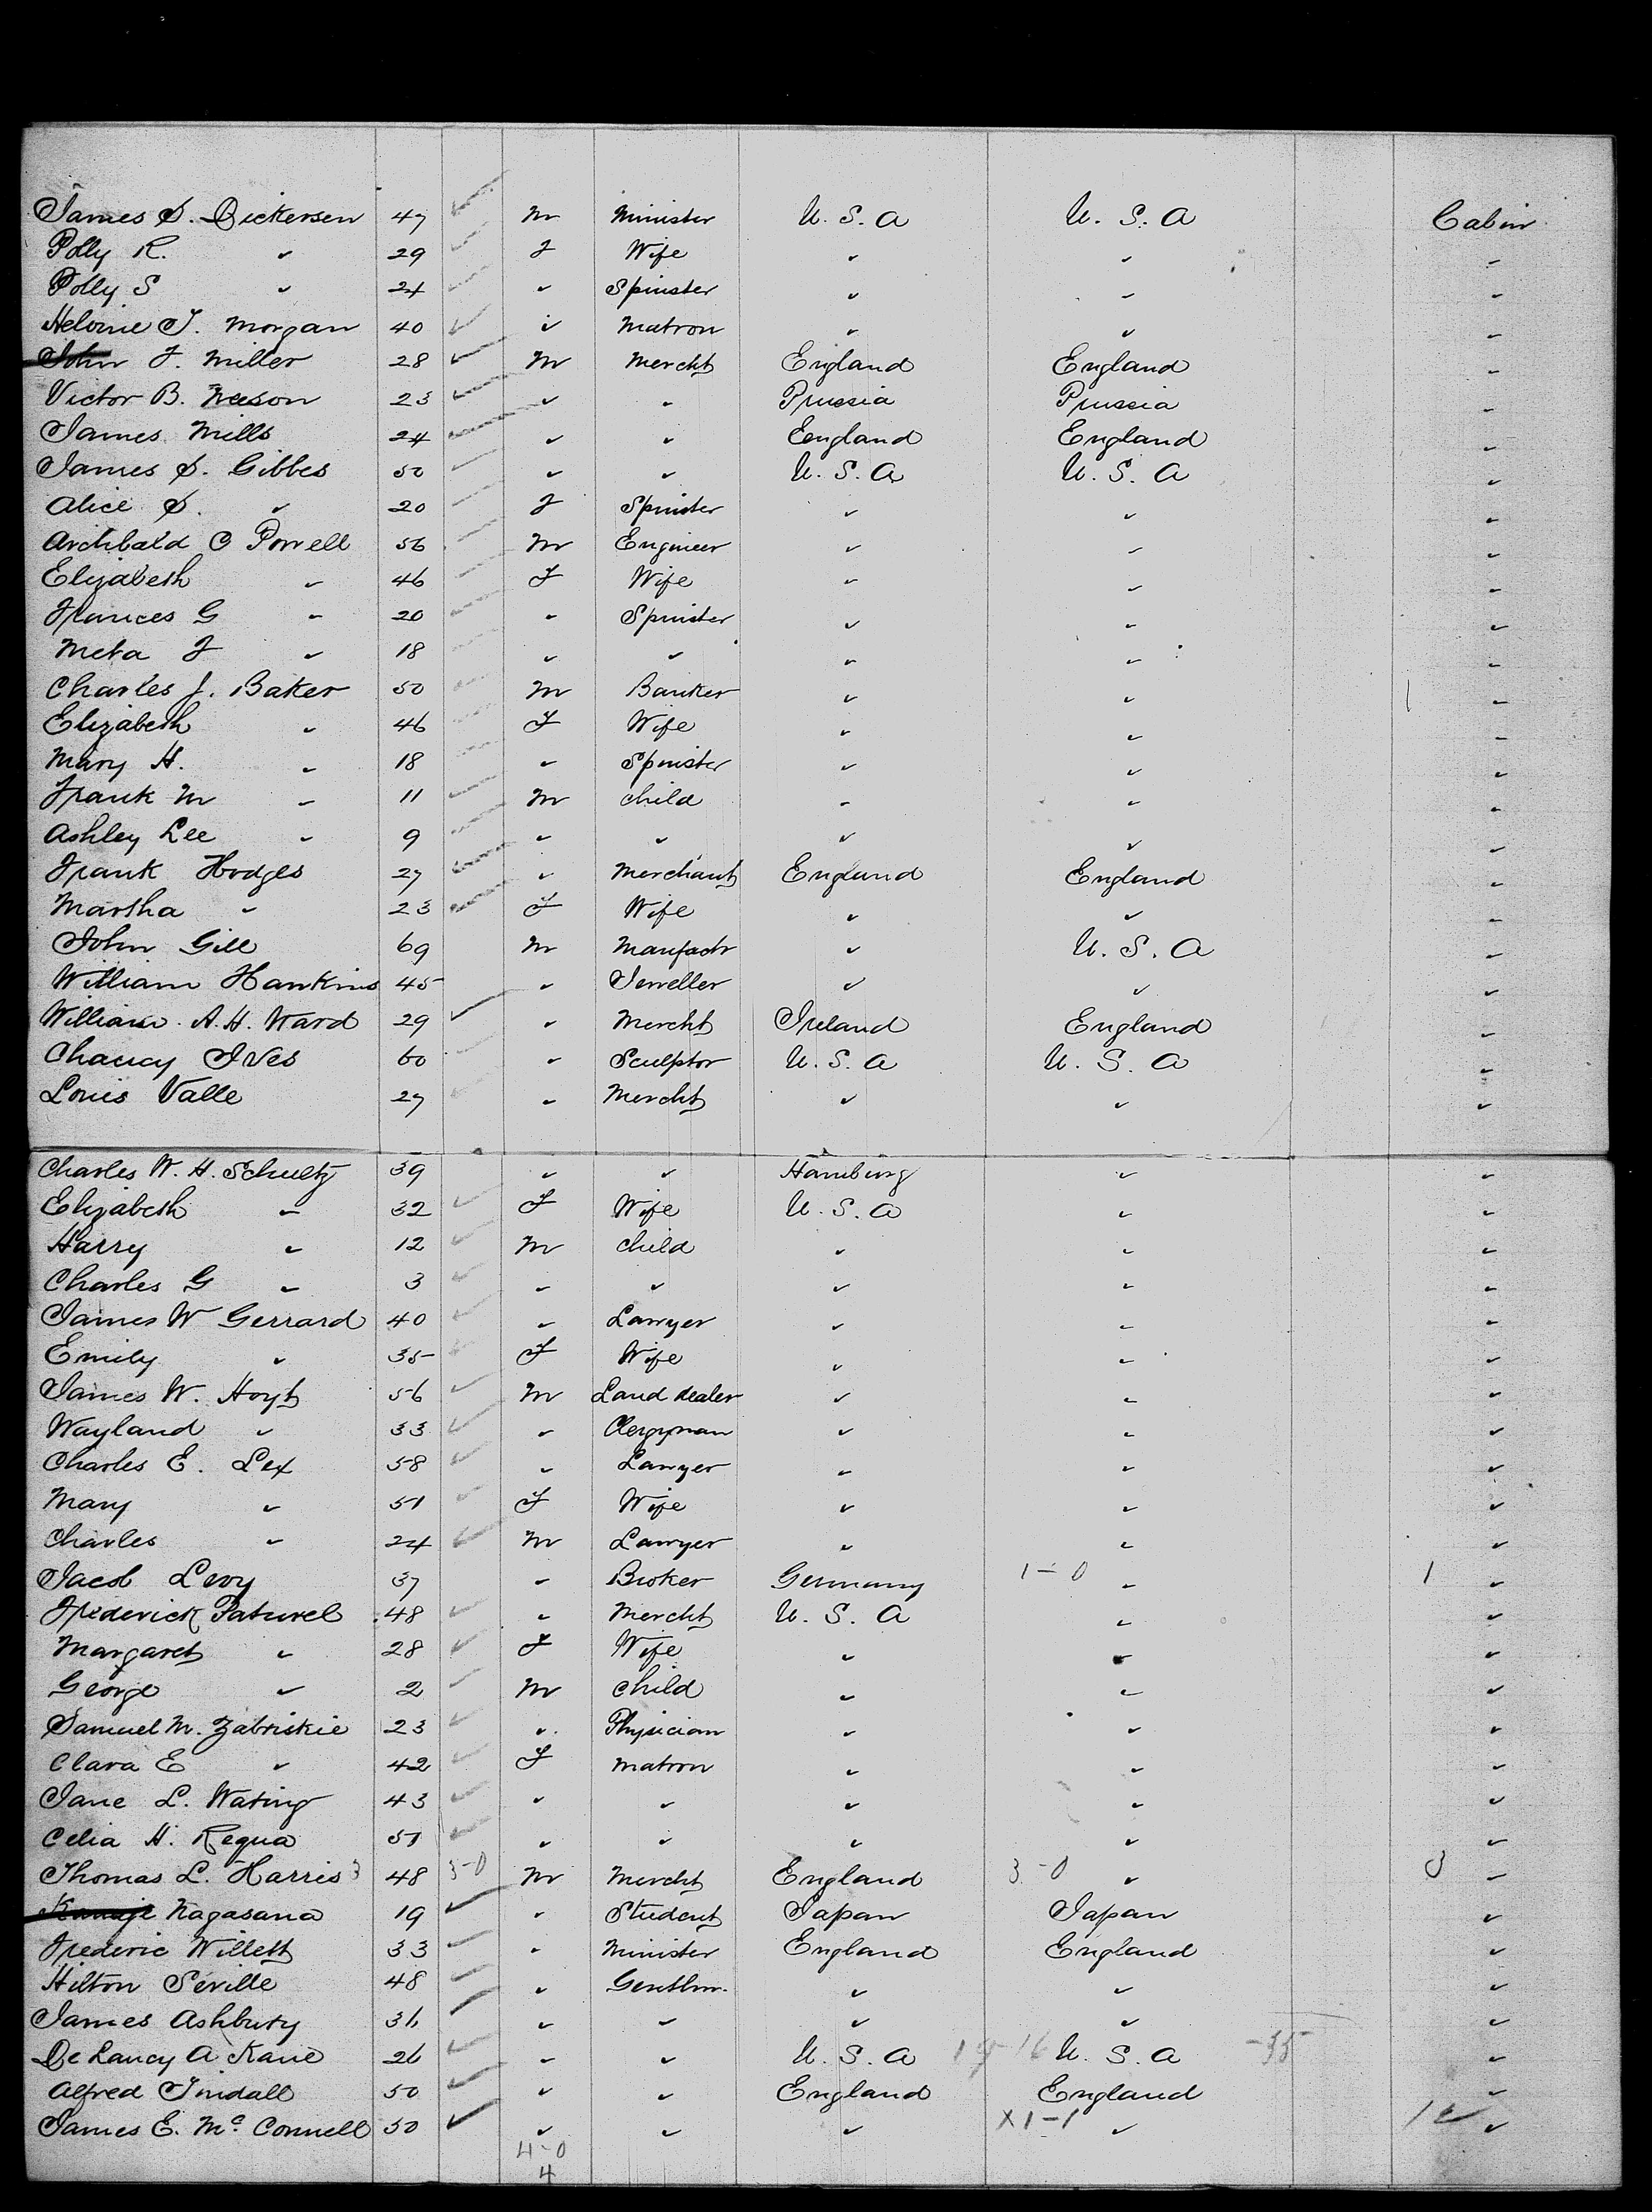 James S. Dickersen 47 M Minister U. S. A U. S. A Cabin
Polly R. " 29 F Wife " " "
Polly S " 24 " Spinster " " "
Heloise T. Morgan 40 " Matron " " "
John F. Miller 28 M Mercht England England "
Victor B. 23 " " Prussia Prussia "
James Mills 24 " " England England "
James S. Gibbes 50 " " U. S. A U. S. A "
Alice S. " 20 F Spinster " " "
Archibald C Powell 56 M Engineer " " "
Elizabeth " 46 F Wife " " "
Frances G " 20 " Spinster " " "
Meta F " 18 " " " " "
Charles J. Baker 50 M Banker " " "
Elizabeth " 46 F Wife " " "
Mary H. " 18 " Spinster " " "
Frank M " 11 M child " " "
Ashley Lee " 9 " " " " "
Frank Hodges 27 " Merchant England England "
Martha " 23 F Wife " " "
John Gill 69 M Manfactr " U. S. A "
William Hawkins 45 " Jeweller " " "
William A. H. Ward 29 " Mercht Ireland England "
Chaucy Ives 60 " Sculptor U. S. A U. S. A "
Louis Valle 27 " Mercht " " "
Charles W. H. Schultz 39 " " Hamburg " "
Elizabeth " 32 F Wife U. S. A " "
Harry " 12 M child " " "
Charles G " 3 " " " " "
James W Gerrard 40 " Lawyer " " "
Emily " 35 F Wife " " "
James W. Hoyt 56 M Land dealer " " "
Wayland " 33 " Clergyman " " "
Charles E. Lex 58 " Lawyer " " "
Mary " 51 F Wife " " "
Charles " 24 M Lawyer " " "
Jacob Levy 37 " Broker Germany 1-0 " 1 "
Frederick Paturel 48 " Mercht U. S. A " "
Margaret " 28 F Wife " " "
George " 2 M child " " "
Samuel M. Zabriskie 23 " Physician " " "
Clara E " 42 F Matron " " "
Jane L. Wating 43 " " " " "
Celia H. Requa 51 " " " " "
Thomas L. Harris 3 48 3-0 M Mercht England 3-0 " 3 "
Nagasawa 19 " Student Japan Japan "
Frederic Willett 33 " Minister England England "
Hilton Seville 48 " Gentlm. " " "
James Ashbury 36 " " " " "
De Lancy A Kane 26 " " U. S. A U. S. A -35 "
Alfred Tindall 50 " " England England "
James E. Mc Connell 50 " " " X1-1 " "
4-0
4